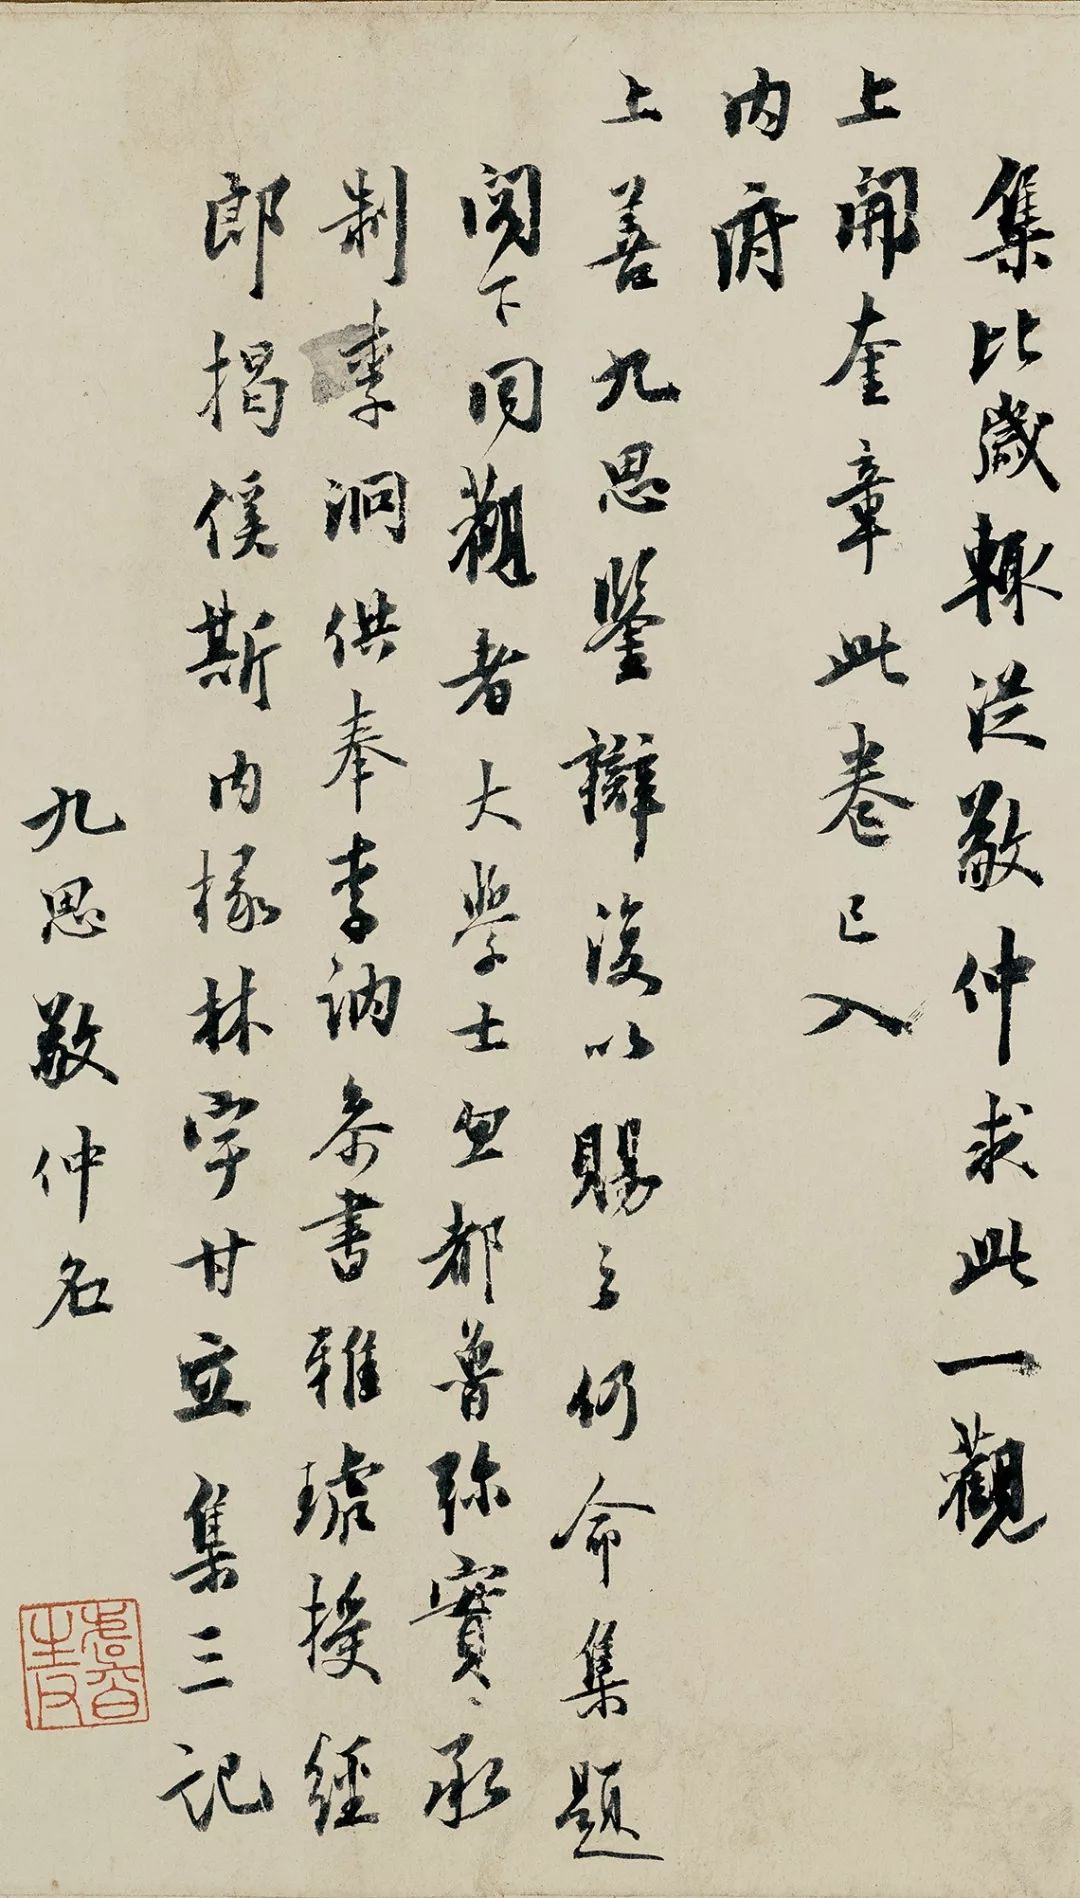 集比歲輒從敬仲求此一觀
上開奎章此卷已入
内府
上善九思鑒辯復以賜之仍命集題
閣下同觀者大學士忽都魯弥實承
制李泂供奉李訥參書雅琥授經
郎揭傒斯内掾林宇甘立集三記
九思敬仲名